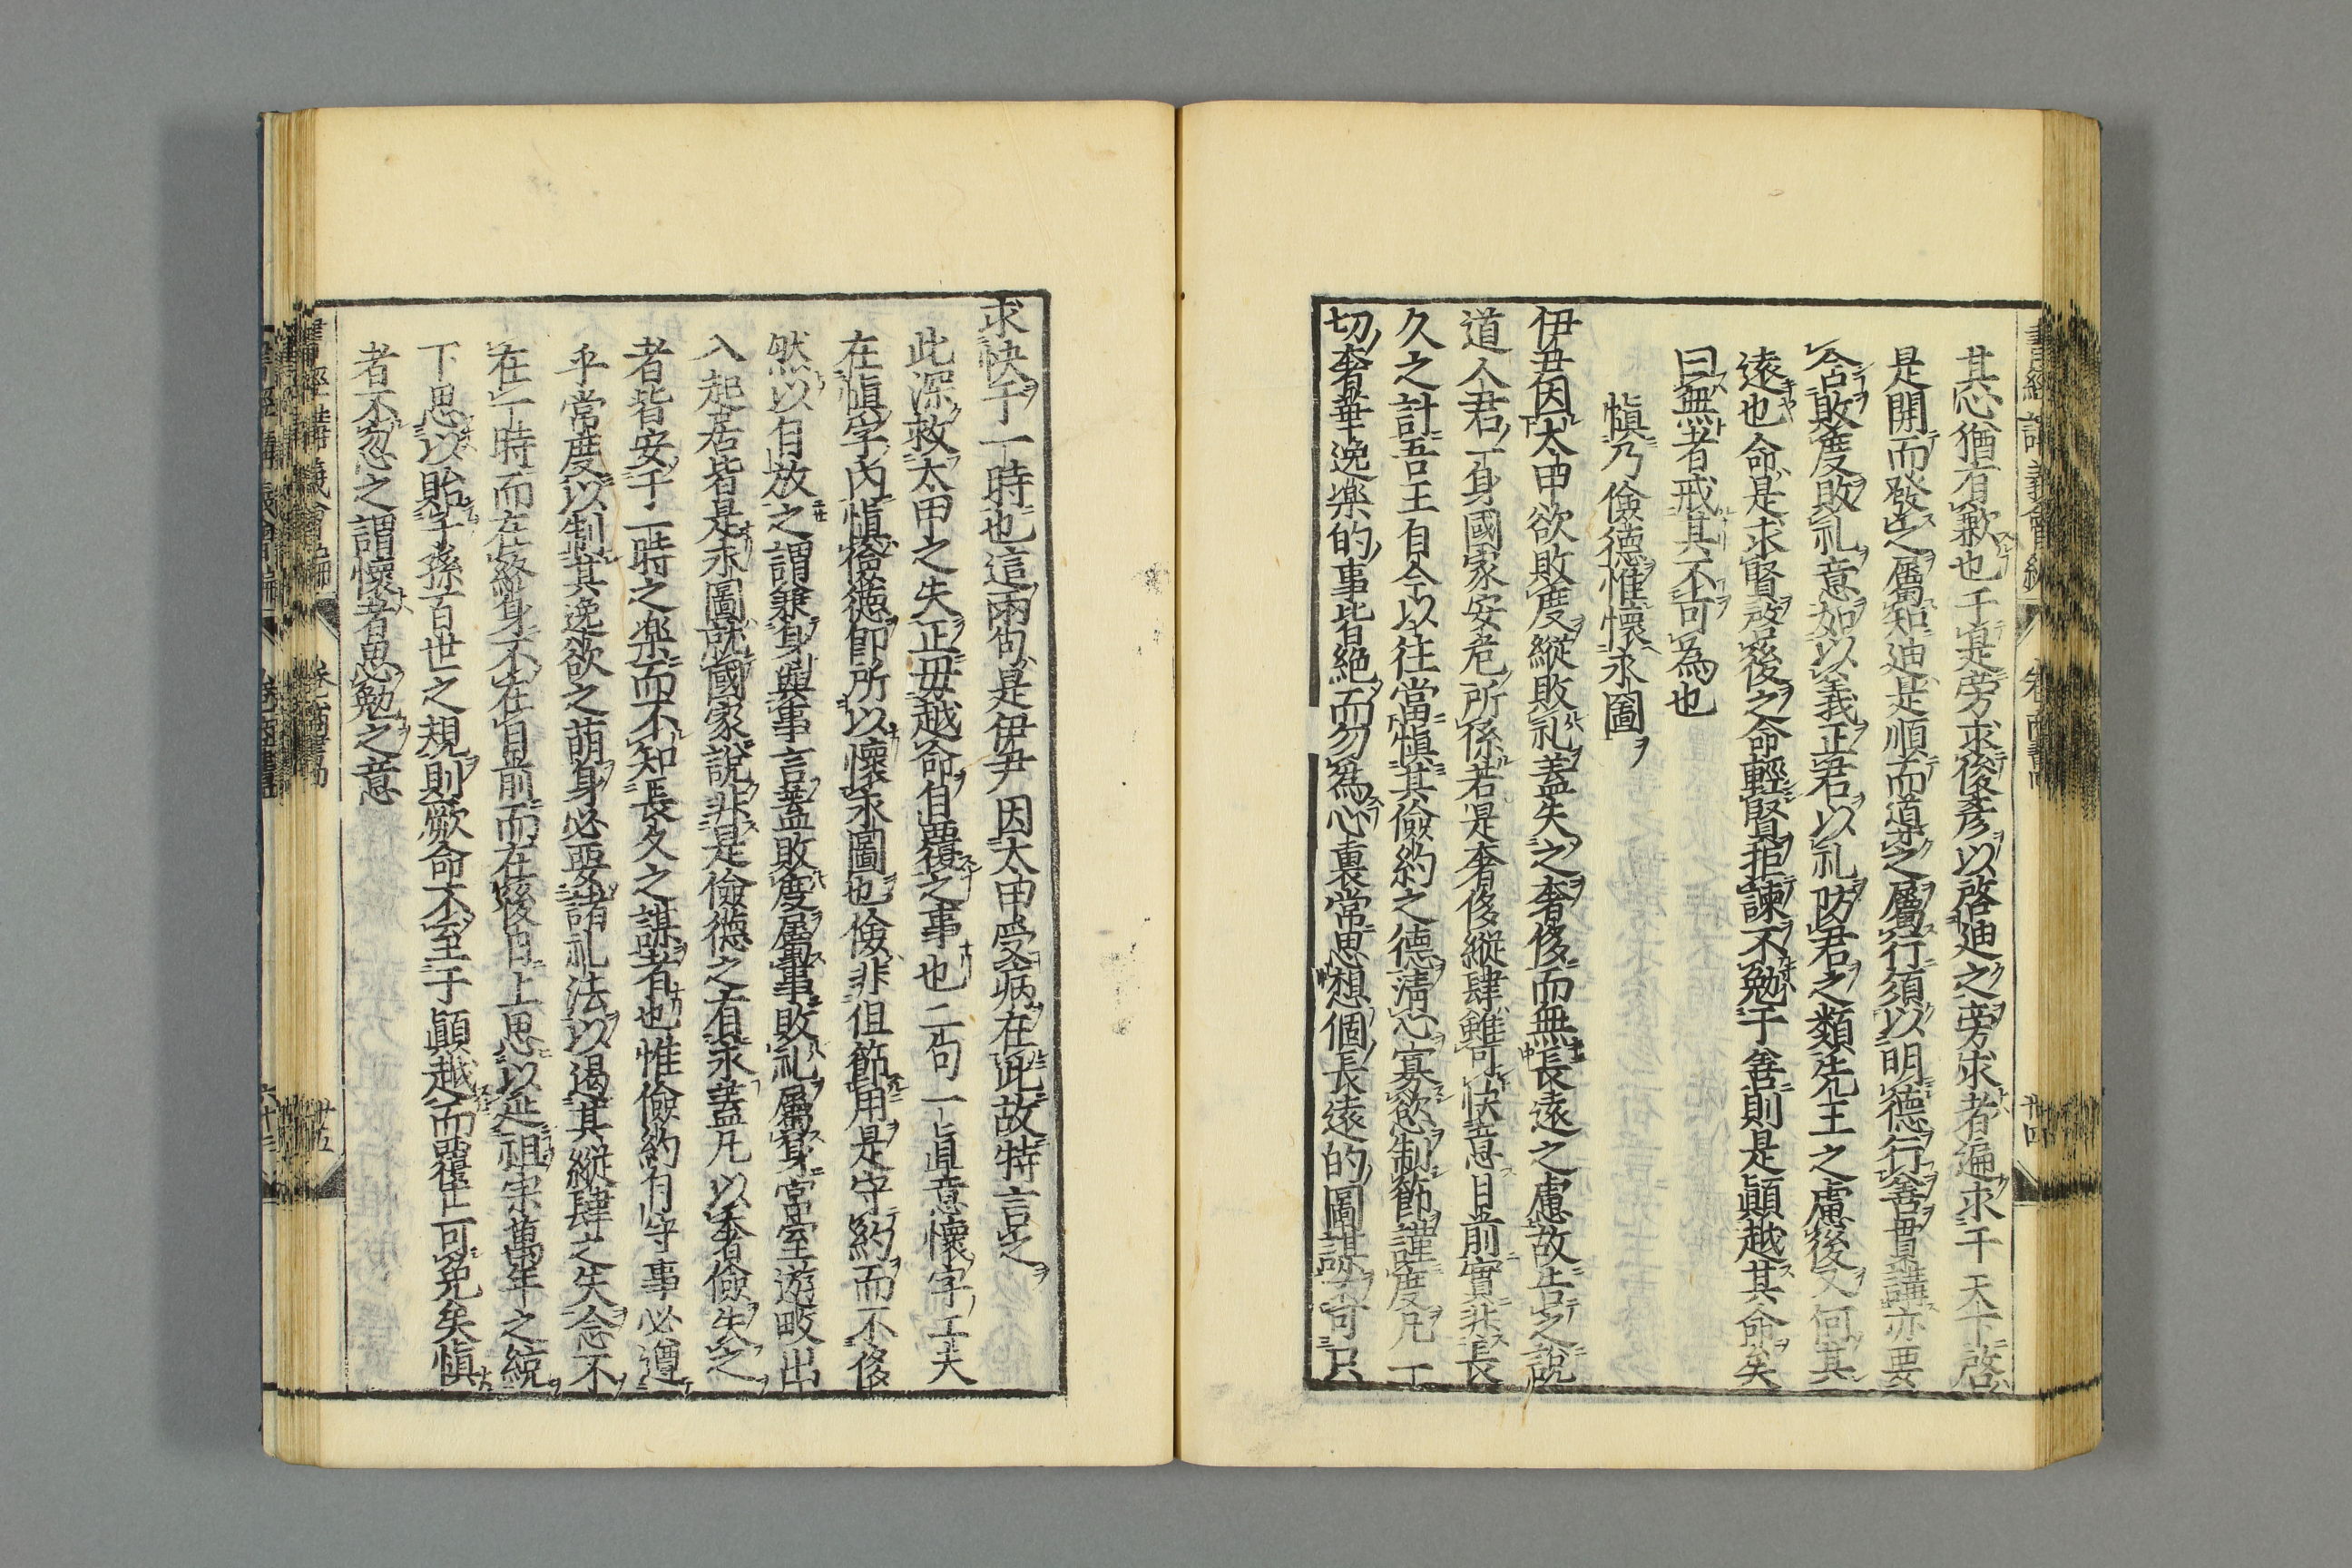 其心猶有歉也于寔旁求後彥以啓迪之旁求者遍求于天下啓
是開而發之屬知迪是順而導之屬行須以明德行善貫講亦要
含敗度敗礼意如以義正君以礼防君之類先王之慮後又何其
遠也命是求賢啓後之命輕賢拒諫不勉于善則是顚越其命矣
曰無者戒其不可為也
愼乃儉德惟懷永圖
伊尹因太甲欲敗度縱敗礼蓋失之奢侈而無長遠之慮故告之說
道人君一身國家安危所係若是奢侈縱肆雖可快意目前實非長
久之計吾王自今以往當愼其儉約之德淸心寡慾制節謹度凡一
切奢華逸楽的事皆絶而勿爲心裏常思想個長遠的圖謀不可只
求快于一時也這兩句是伊尹因太甲受病在此故特言之
此深救太甲之失正毋越命自覆之事也二句一直意懷字工夫
在愼字內愼儉德卽所以懷永圖也儉非但節用是守約而不侈
然以自放之謂兼身與事言蓋敗度屬事敗礼屬身宮室遊畋出
入起居皆是永圖就國家說非是儉德之有永蓋凡以奢儉失之
者皆安于一時之楽而不知長久之謀者也惟儉約有守事必遵
乎常度以制其逸欲之萌身必要諸礼法以遏其縱肆之失念不
在一時而在終身不在目前而在後日上思以延祖宗萬年之統
下思以貽子孫百世之規則厥命不至于顚越而覆亡可免矣愼
者不忽之謂懷者思勉之意